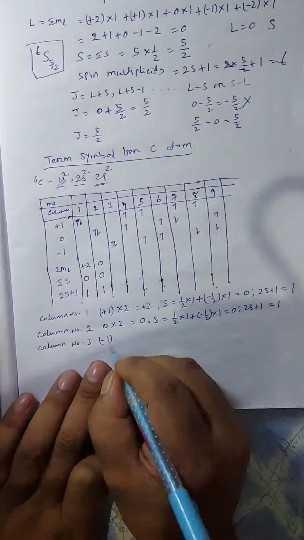 L = Σml = (+2)×1 + (+1)×1 + 0×1 + (-1)×1 + (-2)×1
= 2+1+0-1-2 = 0 L=0 S
⁶S₅/₂
S = Σs = 5 × 1/2 = 5/2
spin multiplicity = 2S+1 = 2×5/2+1 = 6
J = L+S, L+S-1 ..... L-S or S-L
J = 0 + 5/2 = 5/2 0 - 5/2 = -5/2 ×
J = 5/2 5/2 - 0 = 5/2
Term Symbol from C atom
⁶C - 1s² 2s² 2p²
ml
1 2 3 4 5 6 7 8 9
+1 ↑↓ ↑ ↑
0 ↑↓
-1 ↑↓
Σml +2 0
ΣS 0 0
2S+1 1 1
Column no. 1 (+1)×2 = +2, S = 1/2×1 + (-1/2)×1 = 0, 2S+1 = 1
Column no. 2 0×2 = 0, S = 1/2×1 + (-1/2)×1 = 0, 2S+1 = 1
Column no. 3 (-1)